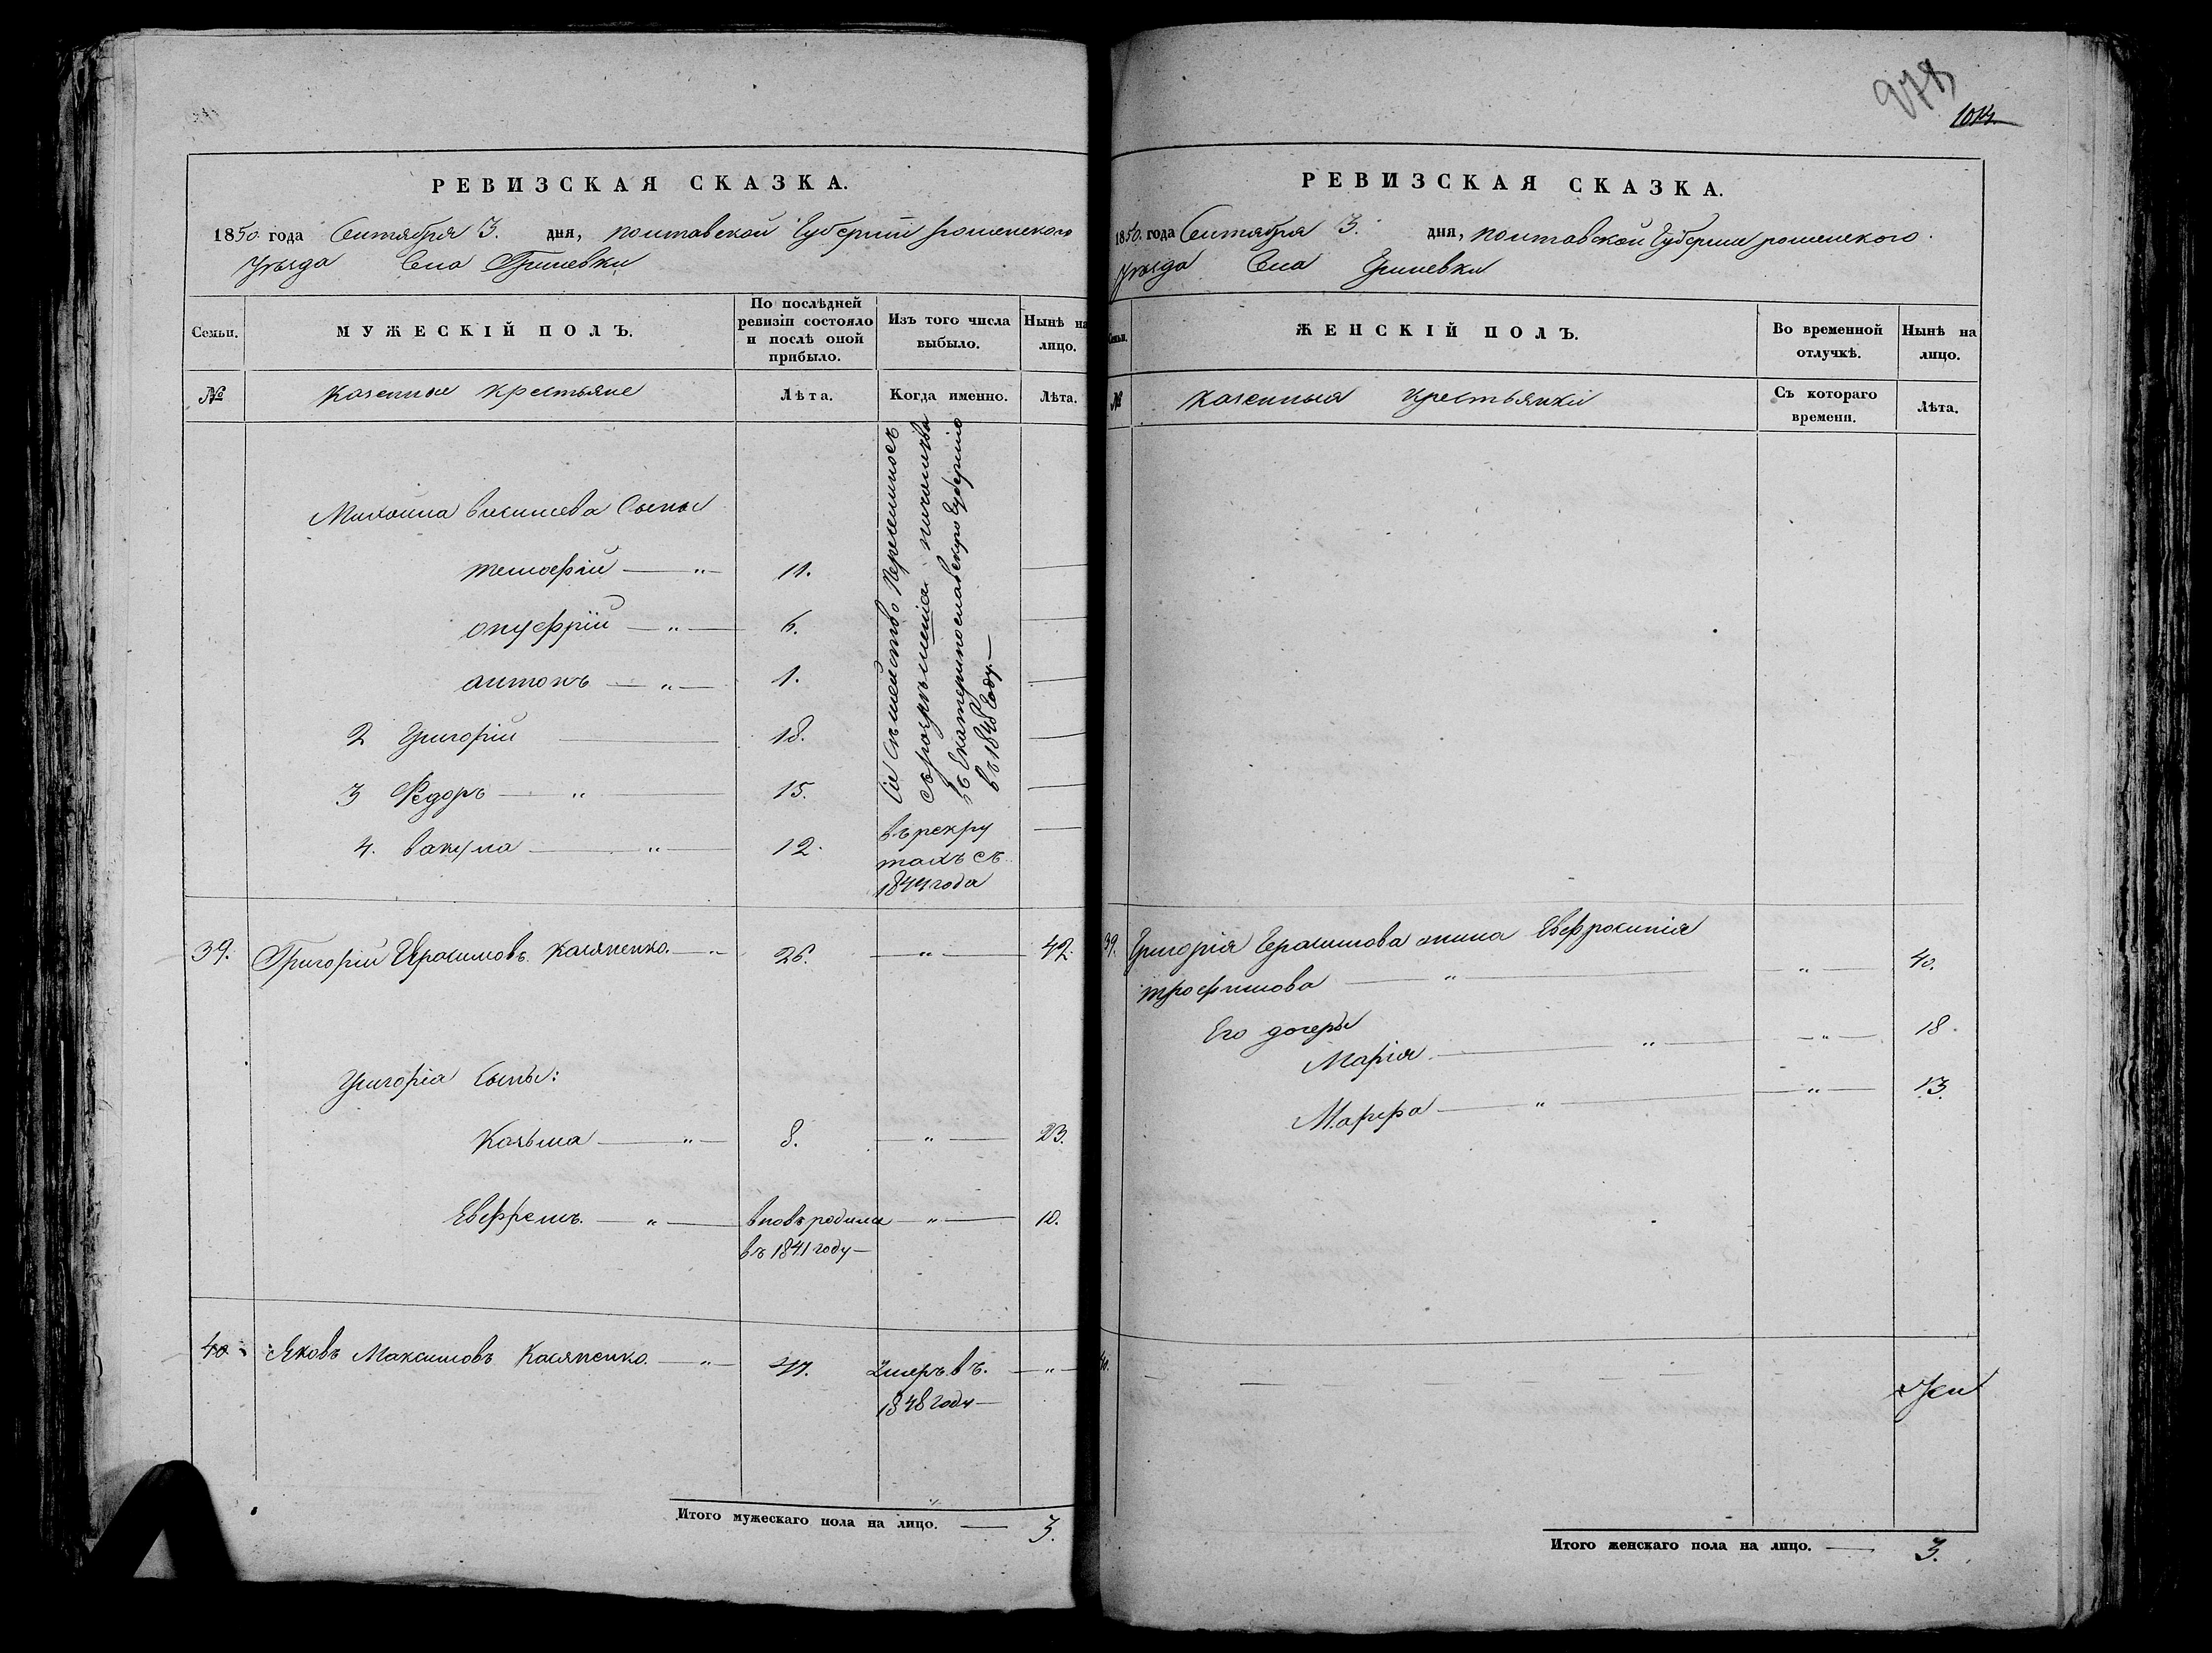 978
1014.
РЕВИЗСКАЯ СКАЗКА.
1850 года Сентября 3. дня, полтавской Губернии роменского
Уезда Села Гриневки
Семьи.
МУЖЕСКІЙ ПОЛЪ.
По послѣдней ревизіи состояло и послѣ оной прибыло.
Изъ того числа выбыло.
Нынѣ на лицо.
№
Казенные крестьяне
Лѣта.
Когда именно.
Лѣта.
Михаила васильева Сыны
тимофій — „ — 11.
онуфрій — „ — 6.
антонъ — „ — 1.
2 Григорій — 18.
3 Федоръ — „ — 15.
4. вакула — „ — 12.
Сіе Семейство Переселилось
въ Екатеринославскую Губернію
въ 1848 Году. —
въ рекру
тахъ съ
1844 года
39. Григорій Герасимовъ Касяненко. — „ 26. — „ — 42.
Григорія Сыны:
Козьма — „ — 8. — „ — 23.
Евфремъ. — „ — вновь родился — „ — 10.
въ 1841 году —
40. Яковъ Максимовъ Касяненко. — „ — 47. Умеръ въ. — „ —
1848 году —
Итого мужескаго пола на лицо. — 3.
РЕВИЗСКАЯ СКАЗКА.
1850. года Сентября 3. дня, полтавской Губернии роменского.
Уезда Села Гриневки
Семьи.
ЖЕНСКІЙ ПОЛЪ.
Во временной отлучкѣ.
Нынѣ на лицо.
№
Казенныя крестьянки
Съ котораго времени.
Лѣта.
39. Григорія Герасимова жина Евфросинія
трофимова — „ — „ — 40.
Его дочеры
Марія. — „ — „ — 18.
Марфа — „ — „ — 13.
40.
Итого женскаго пола на лицо. — 3.